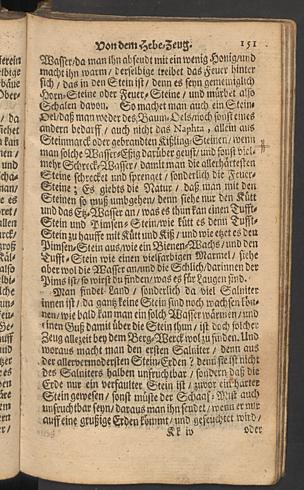 Von dem Hebe-Zeug. 151
Wasser/da man ihn abseudt mit ein wenig Honig/und
macht ihn warm/ derselbige treibet das Feuer hinter
sich / das in den Stein ist/ denn es seyn gemeiniglich
Horn-Steine oder Feuer-Steine / und mürbet also
Schalen davon. So machet man auch ein Stein-
Oel/daß man weder des Baum-Oels/noch sonst eines
andern bedarff / auch nicht das Naphta, allein aus
Steinmarck oder gebrandten Kißling-Steinen/ wenn
man solche Wasser-Eßig darüber geust/ und sonst viel
mehr Schreck-Wasser/ damit man die allerhärtesten
Steine schrecket und sprenget / sonderlich die Feuer-
Steine; Es giebts die Natur / daß man mit den
Steinen so muß umbgehen/ denn siehe nur den Kütt
und das Etz-Wasser an/ was es thun kan einen Tufft-
Stein und Pimsen-Stein/wie kütt es denn Tufft-
Stein zu hauff mit Kütt und Kiß/ und wie etzet es den
Pimsen-Stein aus/wie ein Bienen-Wachs/ und den
Tufft-Stein wie einen vielfarbigen Marmel/ siehe
aber wol die Wasser an/und die Schlich/darinnen der
Pims ist/ so wirst du finden/was es für Laugen sind.
Man findet Land / sonderlich da viel / Salniter
innen ist/ da gantz keine Stein sind noch wachsen kön-
nen/wie bald kan man ein solch Wasser wärmen/ und
einen Guß damit über die Stein thun/ ist doch solcher
Zeug allezeit bey dem Berg-Werck wol zu finden. Und
woraus macht man den ersten Salniter / denn aus
der allervermodersten Stein-Erden? denn sie ist nicht
des Salniters halben unfruchtbar / sondern daß die
Erde nur ein verfaulter Stein ist / zuvor ein harter
Stein gewesen/ sonst müste der Schaaf-Mist auch
unfruchtbar seyn/daraus man ihn seudet/ wenn er nur
auff eine grußige Erden kömmt/ und gefeuchtet wird/
Kk iv oder